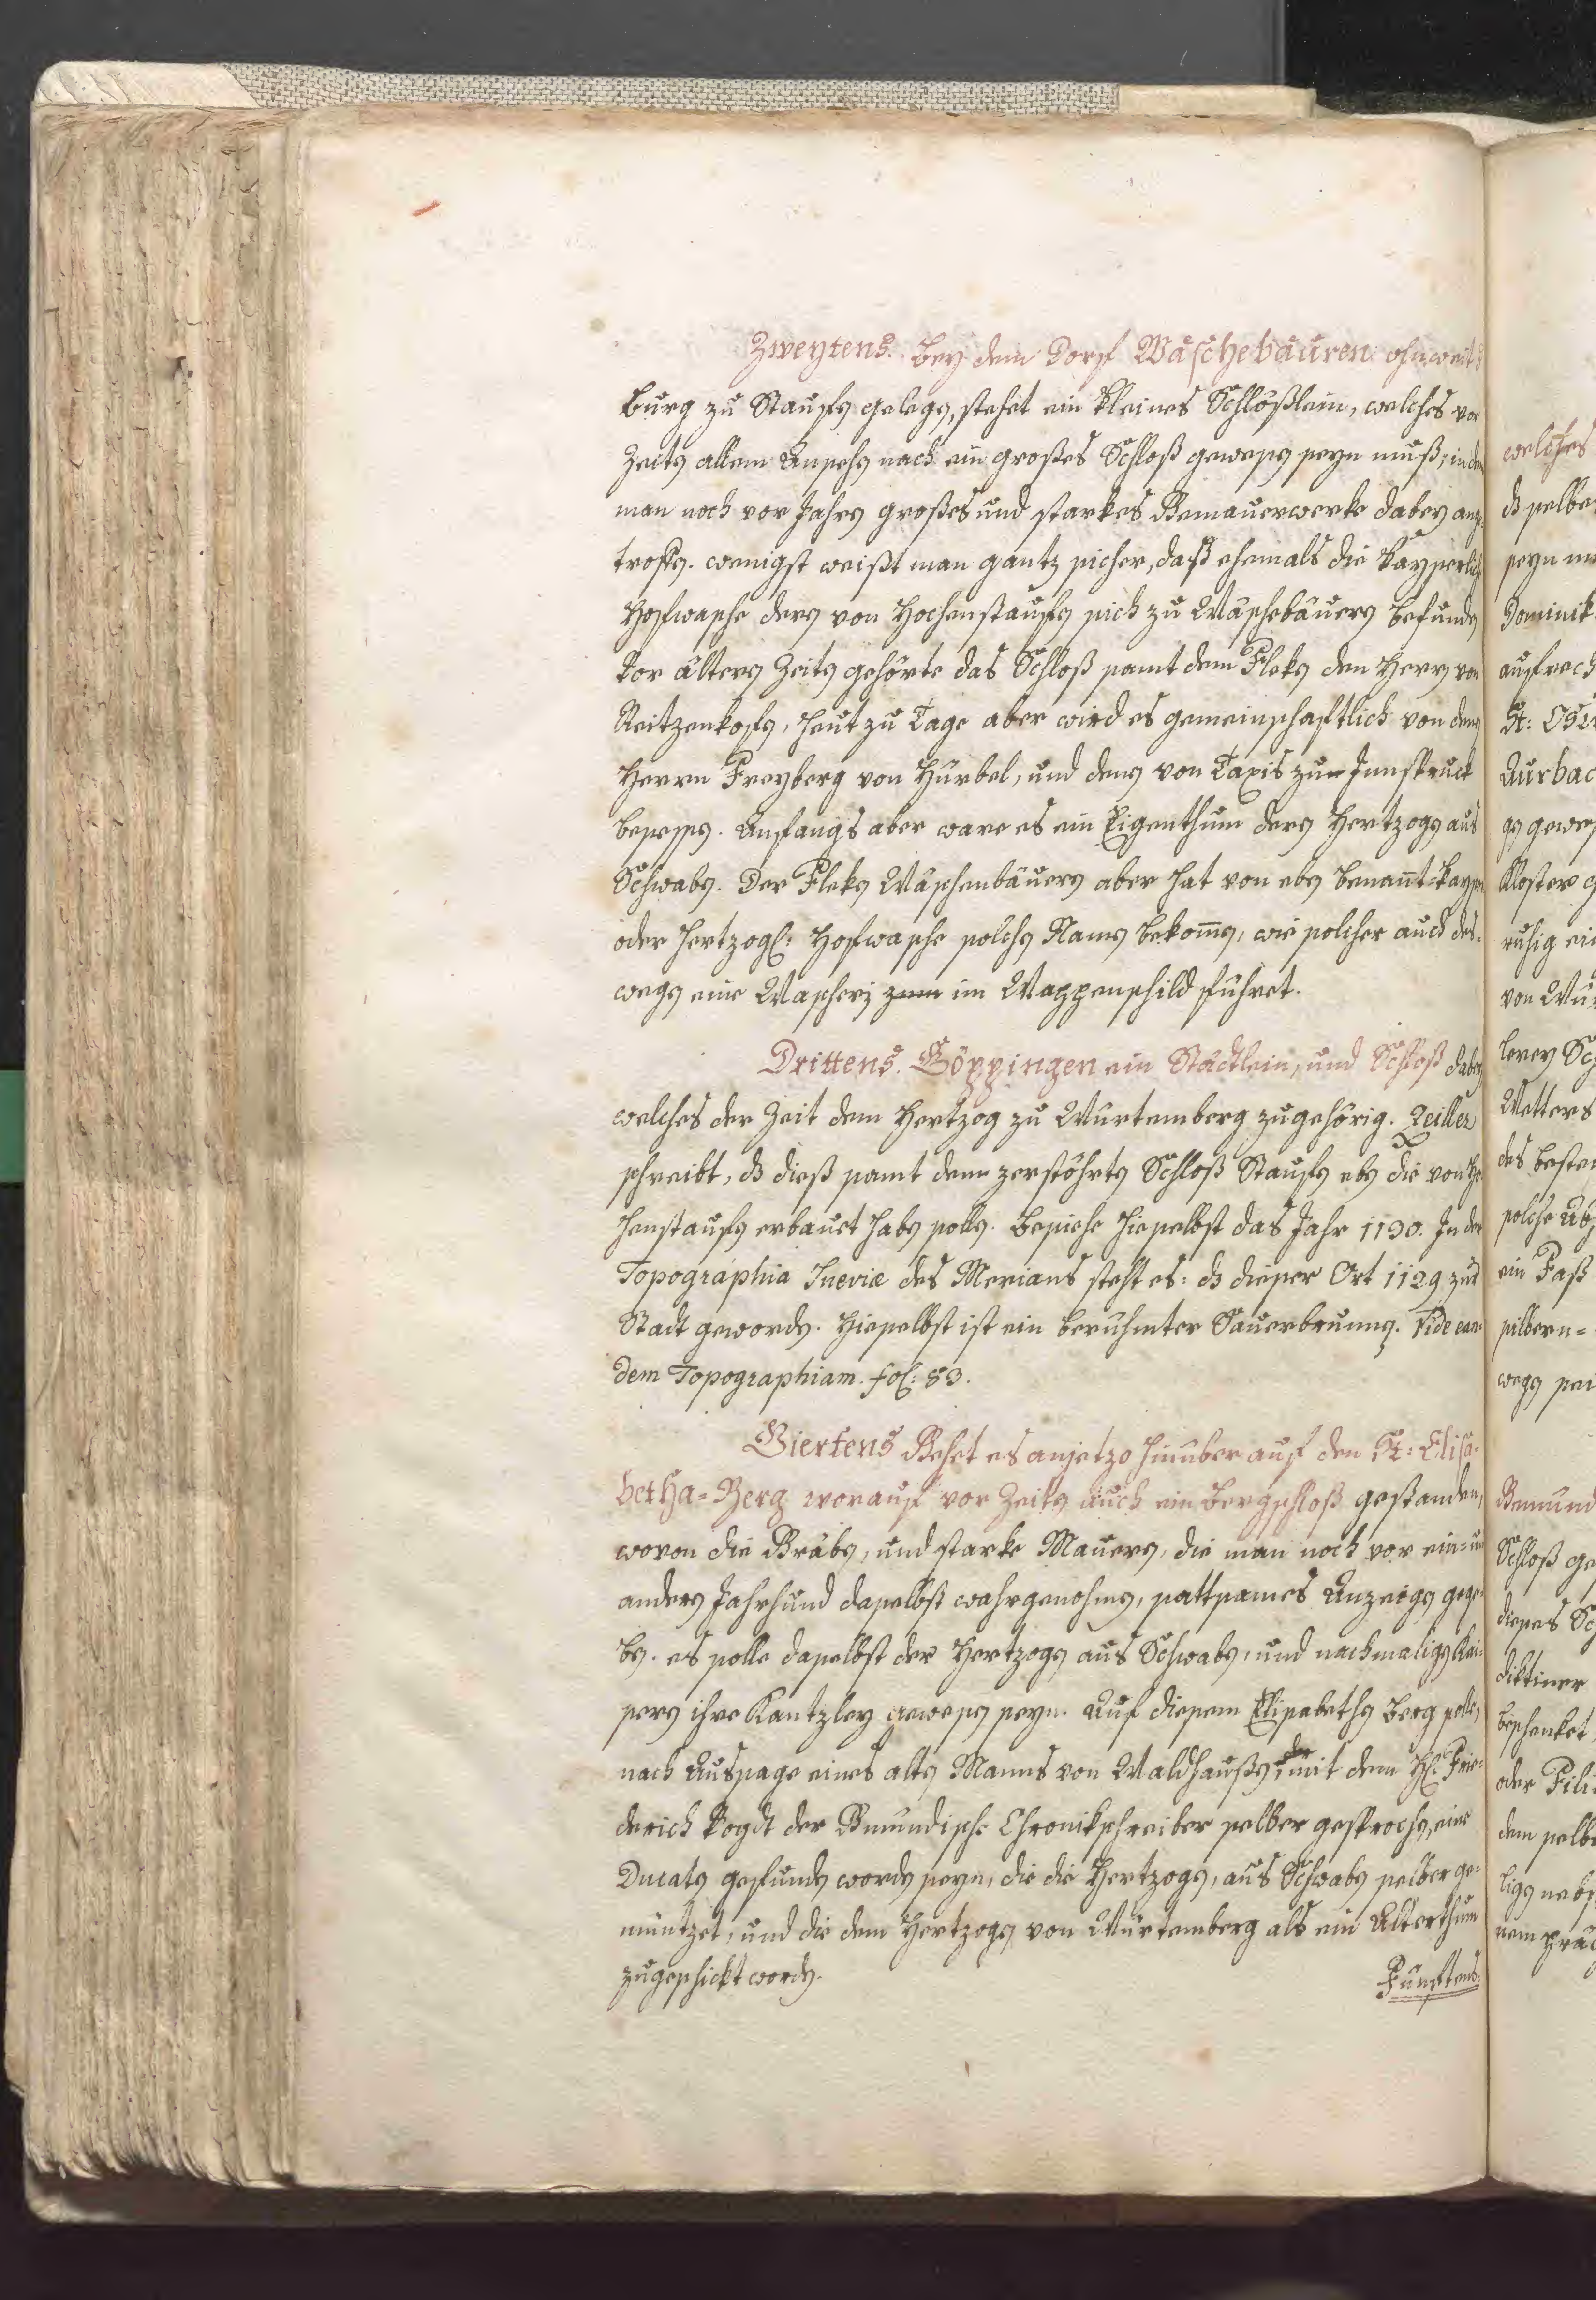 Zweytens. Bey dem Dorf Wäschebäuren ohnweit
Burg zu Staufen gelegen, stehet ein kleines Schlößlein, welches vor
Zeiten allem Ansehen nach ein großes Schloß gewesen seyn muß, indem
man noch vor Jahren großes und starkes Gemäuerwerke dabey ange
troffen. wenigst weißt man gantz sicher, daß ehemals die Kayserlich
Hofwasche deren von Hochenstaufen sich zu Wäschebäuren befunden
Vor älteren Zeiten gehörte das Schloß samt dem Fleken den Herren von
Reitzenkofen, heut zu Tage aber wird es gemeinschaftlich von denen
Herrn Freyberg von Hürbel, und denen von Taxis zur Innspruck
besessen. Anfangs aber ware es ein Eigenthum deren Hertzogen aus
Schwaben. Der Fleken Wäschenbäuren aber hat von eben benannt-Kayser
oder Hertzogl: Hofwasche solchen Namen bekommen, wie solcher auch des-
wegen eine Wascherj zum im Wappenschild führet.
Drittens. Göppingen ein Städtlein, und Schloß dabey
welches der Zeit dem Hertzog zu Würtemberg zugehörig. Zeiller
schreibt, dz dieß samt dem zerstöhrten Schloß Staufen eben die von Ho
henstaufen erbauet haben sollen. Besiehe hieselbst das Jahr 1130. In der
Topographia Sueviæ des Merians steht es: dz dieser Ort 1129 zur
Stadt geworden. Hieselbst ist ein berühmter Sauerbrunnen. Vide ean
dem Topographiam. fol: 83.
Viertens Gehet es anjetzo hinüber auf den St: Elisa-
betha-Berg worauf vor Zeiten auch ein Bergschloß gestanden,
wovon die Gräben, und starke Mauern, die man noch vor ein- und
andern Jahrhund daselbst wahrgenohmen, sattsames Anzeigen gege
ben. es solle daselbst der Hertzogen aus Schwaben, und nachmaligen Kai-
sern ihre Kantzley gewesen seyn. Auf diesem Elisabethen Berg sollen
nach Aussage eines alten Manns von Waldhaußen, der mit dem H: Frie-
derich Vogdt der Gmündische Chronikschreiber selber gesprochen, eine
Ducaten gefunden worden seyn, die die Hertzogen, aus Schwaben selber ge-
müntzet, und die dem Hertzogen von Würtemberg als ein Alterthum
zugeschickt worden.
Fünftens.
welches
dz selbe
seyn
Dominik
aufrech
St:
Aurbac
Kloster
ruhig
von
Wetters
des
solche
ein Faß
silbern-
Gmünd
Schloß ge
dieses
diktiner
beschenket
oder
dem selbe